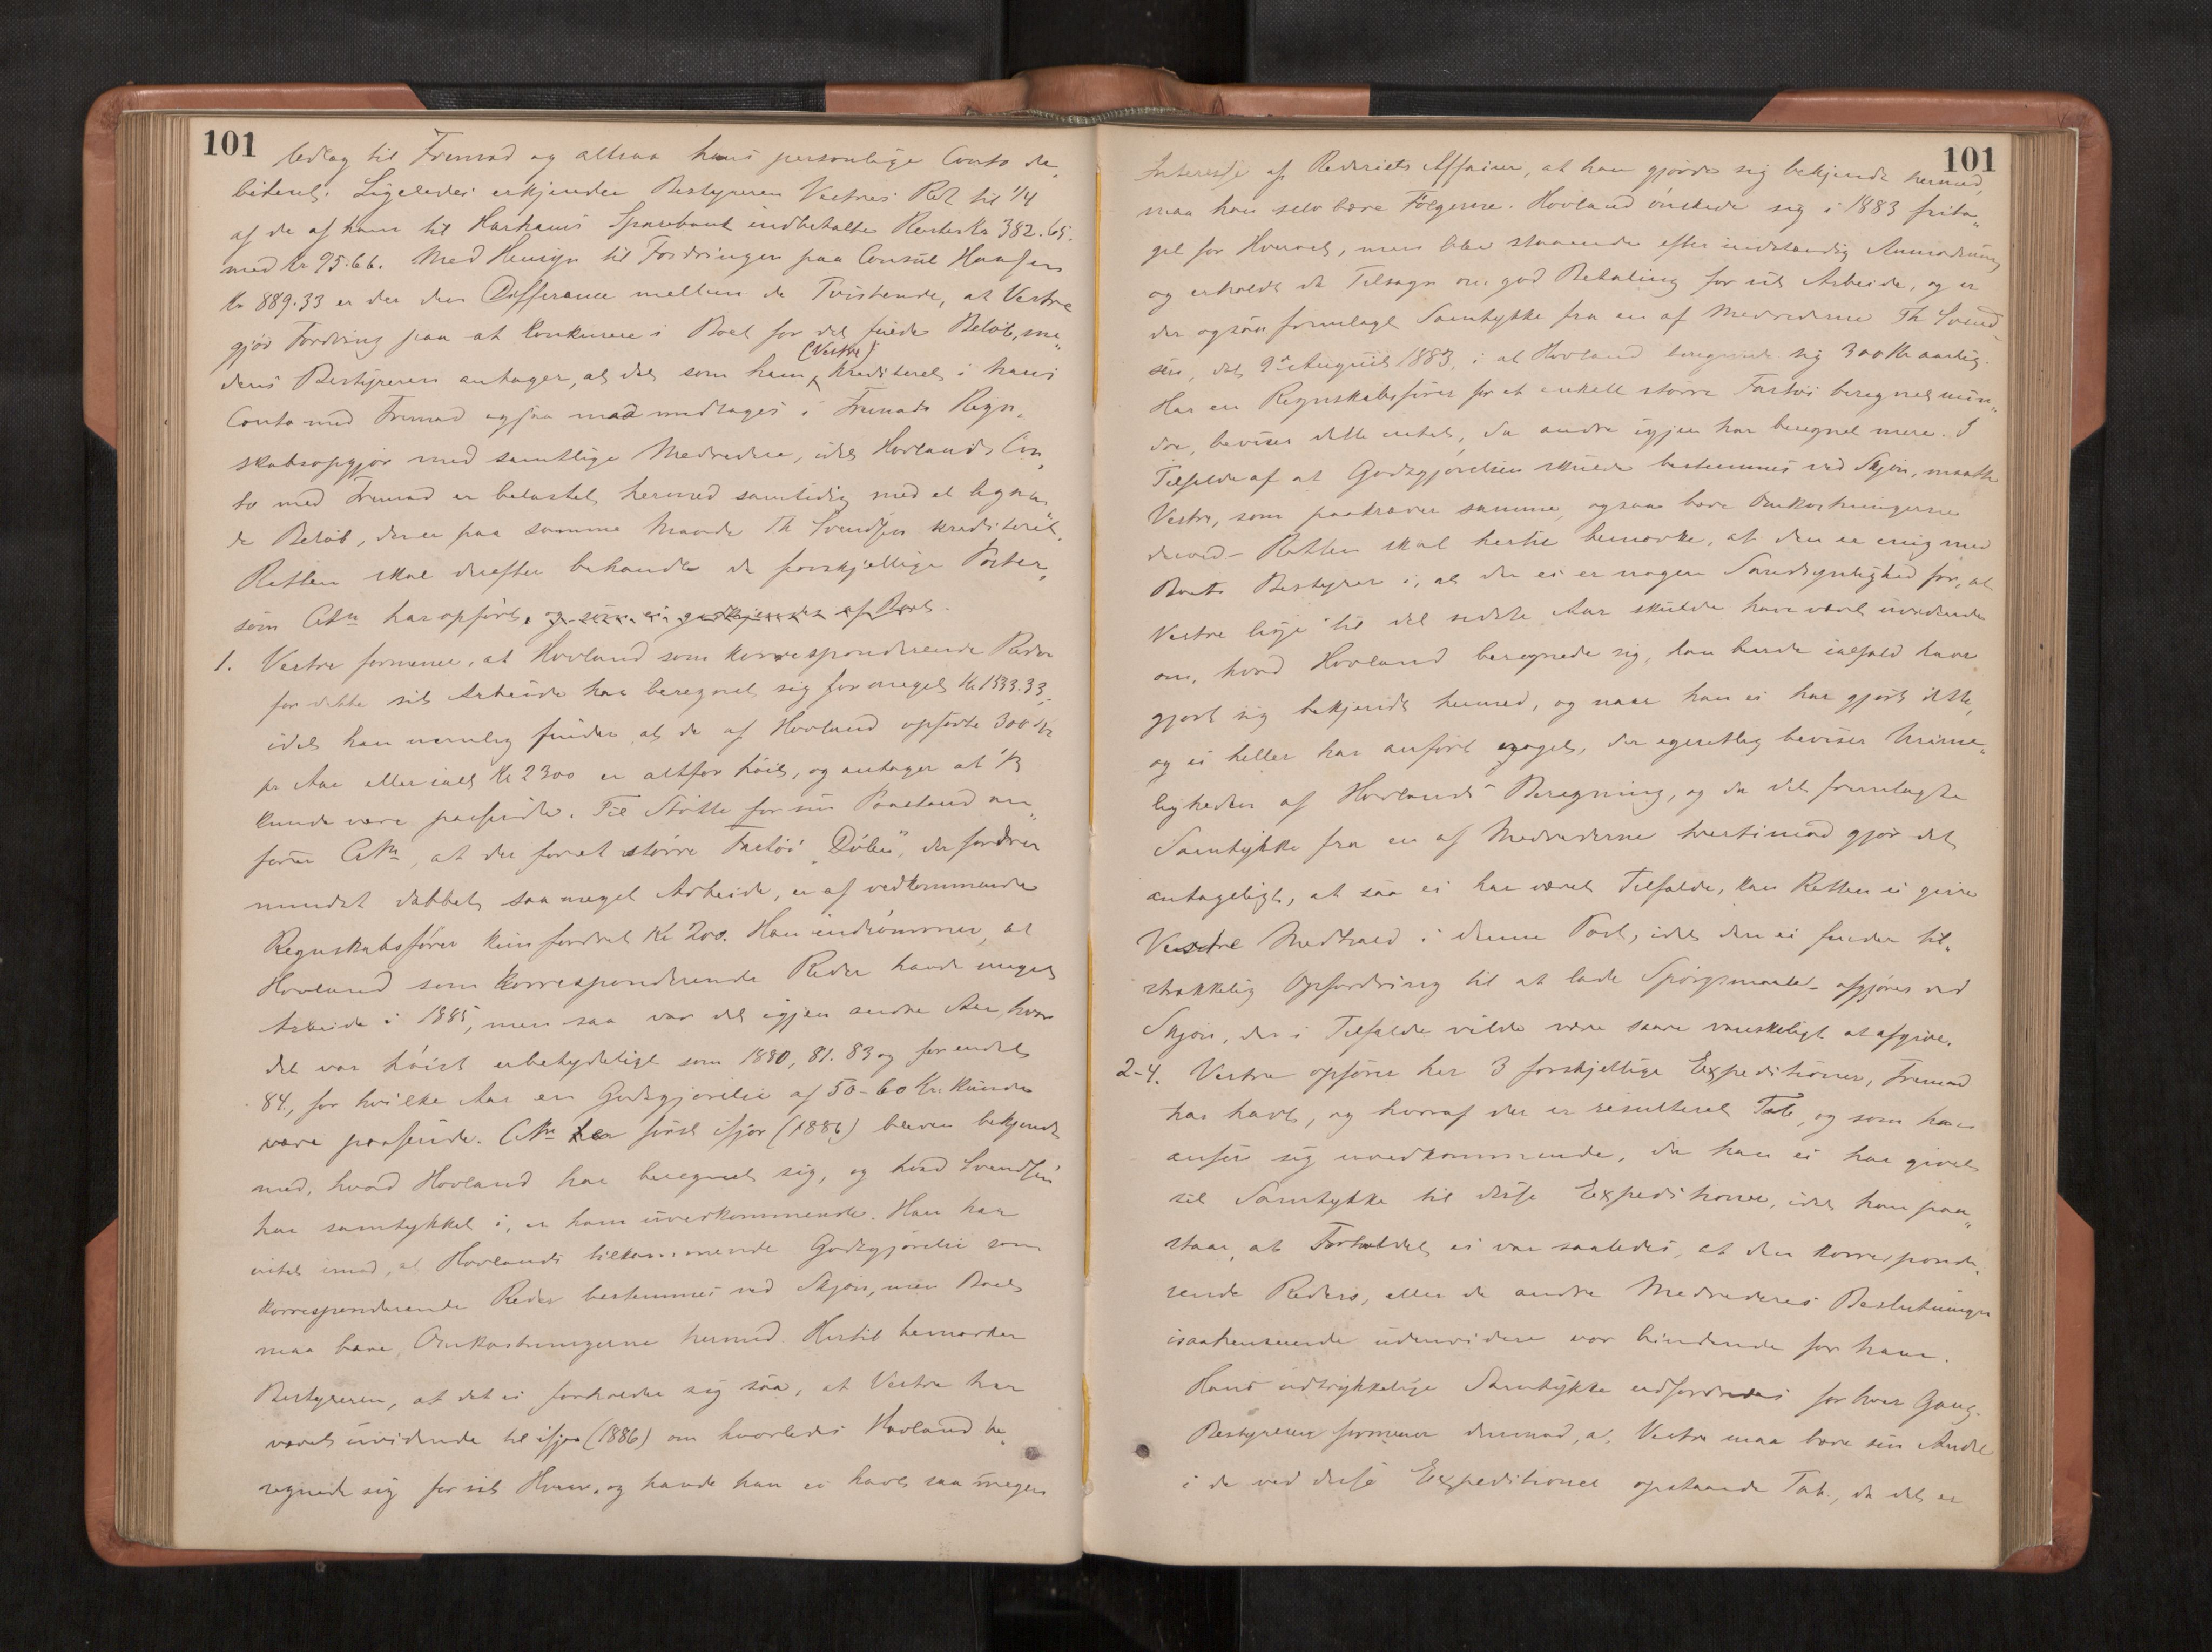 101
bidrag til Fremad og altsaa hans personlige Conto de„
biteret. Ligeledes erkjender Bestyreren Vestres Ret til 1/4
af de af ham til Harhams Sparebank indbetalte Renter Kr 382.65.
med Kr 95.66. Med Hensyn til Fordringen paa Consul Haasen
Kr 889.33 er der den Differance mellem de Tvistende, at Vestre
gjør Fordring paa at konkurere i Boet for det fulde Beløb, me„
(Vestre)
dens Bestyreren antager, at det som ham krediteret i hans
Conto med Fremad ogsaa maa medtages i Fremads Regn„
skabsopgjør med samtlige Medredere, idet Hovlands Con„
to med Fremad er belastet hermed samtidig med et lignen„
de Beløb, der er paa samme Maade Th Svendsen krediteret.
Retten skal derefter behandle de forskjellige Poster,
som Citn har opført, og som ei godkjendes af Boet.
1. Vestre formener, at Hovland som korresponderende Reder
for dette sit Arbeide har beregnet sig for meget Kr 1533.33,
idet han nemlig finder at de af Hovland opførte 300 Kr
pr Aar eller ialt Kr 2300 er altfor høit, og antager at 1/3
kunde være passende. Til Støtte for sin Paastand an„
fører Citn, at der for et større Fartøi "Dólen", der fordrer
mindst dobbelt saa meget Arbeide, er af vedkommende
Regnskabsfører kun fordret Kr 200. Han indrømmer, at
Hovland som korresponderende Reder havde meget
Arbeide i 1885, men saa var det igjen andre Aar, hvor
det var høist ubetydeligt som 1880, 81. 83 og for endel
84, for hvilke Aar en Godtgjørelse af 50-60 Kr. kunde
være passende. Citn har først ifjor (1886) bleven bekjendt
med, hvad Hovland har beregnet sig, og hvad Svendsen
har samtykket i, er ham uvedkommende. Han har
intet imod, at Hovlands tilkommende Godtgjørelse som
korresponderende Reder bestemmes ved Skjøn, men Boet
maa bære Omkostningerne hermed. Hertil bemærker
Bestyreren, at det ei forholder sig saa, at Vestre har
været uvidende til ifjor (1886) om hvorledes Hovland be„
regnede sig for sit Hverv, og havde han ei havt saa megen
101
Interesse af Rederiets Affairer, at han gjorde sig bekjendt hermed,
maa han selv bære Følgerne. Hovland ønskede sig i 1883 frita„
get for Hvervet, men blev staaende efter indstændig Anmodning
og erholdt da Tilsagn om god Betaling for sit Arbeide, og er
der ogsaa fremlagt Samtykke fra en af Medrederne Th Svend„
sen, dat 9de August 1883, i at Hovland beregnede sig 300 Kr aarlig.
Har en Regnskabsfører for et enkelt større Fartøi beregnet min„
dre, beviser dette intet, da andre igjen har beregnet mere. I
Tilfælde af at Godtgjørelsen skulde bestemmes ved Skjøn, maatte
Vestre, som paakræver samme, ogsaa bære Omkostningerne
derved. - Retten skal hertil bemærke, at den er enig med
Boets Bestyrer i, at der ei er nogen Sandsynlighed for, at
Vestre lige til det sidste Aar skulde have været uvidende
om, hvad Hovland beregnede sig, han burde ialfald have
gjort sig bekjendt hermed, og naar han ei har gjort dette,
og ei heller har anført noget, der egentlig beviser Urime„
ligheden af Hovlands Beregning, og da det fremlagte
Samtykke fra en af Medrederne tvertimod gjør det
antageligt, at saa ei har været Tilfælde, kan Retten ei give
Vestre Medhold i denne Post, idet den ei finder til„
strækkelig Opfordring til at lade Spørgsmaalet afgjøres ved
Skjøn, der i Tilfælde vilde være saare vanskeligt at afgive.
2-4. Vestre opfører her 3 forskjellige Expeditioner, Fremad
har havt, og hvoraf der er resulteret Tab, og som han
anser sig uvedkommende, da han ei har givet
sit Samtykke til disse Expeditioner, idet han paa„
staar, at Forholdet ei var saaledes, at den korresponde„
rende Reders, eller de andre Medrederes Beslutninger
isaahenseende udenvidere var bindende for ham.
Hans udtrykkelige Samtykke udfordredes for hver Gang.
Bestyreren formener derimod, at Vestre maa bære sin Andel
i de ved disse Expeditioner opstaaede Tab, da det er